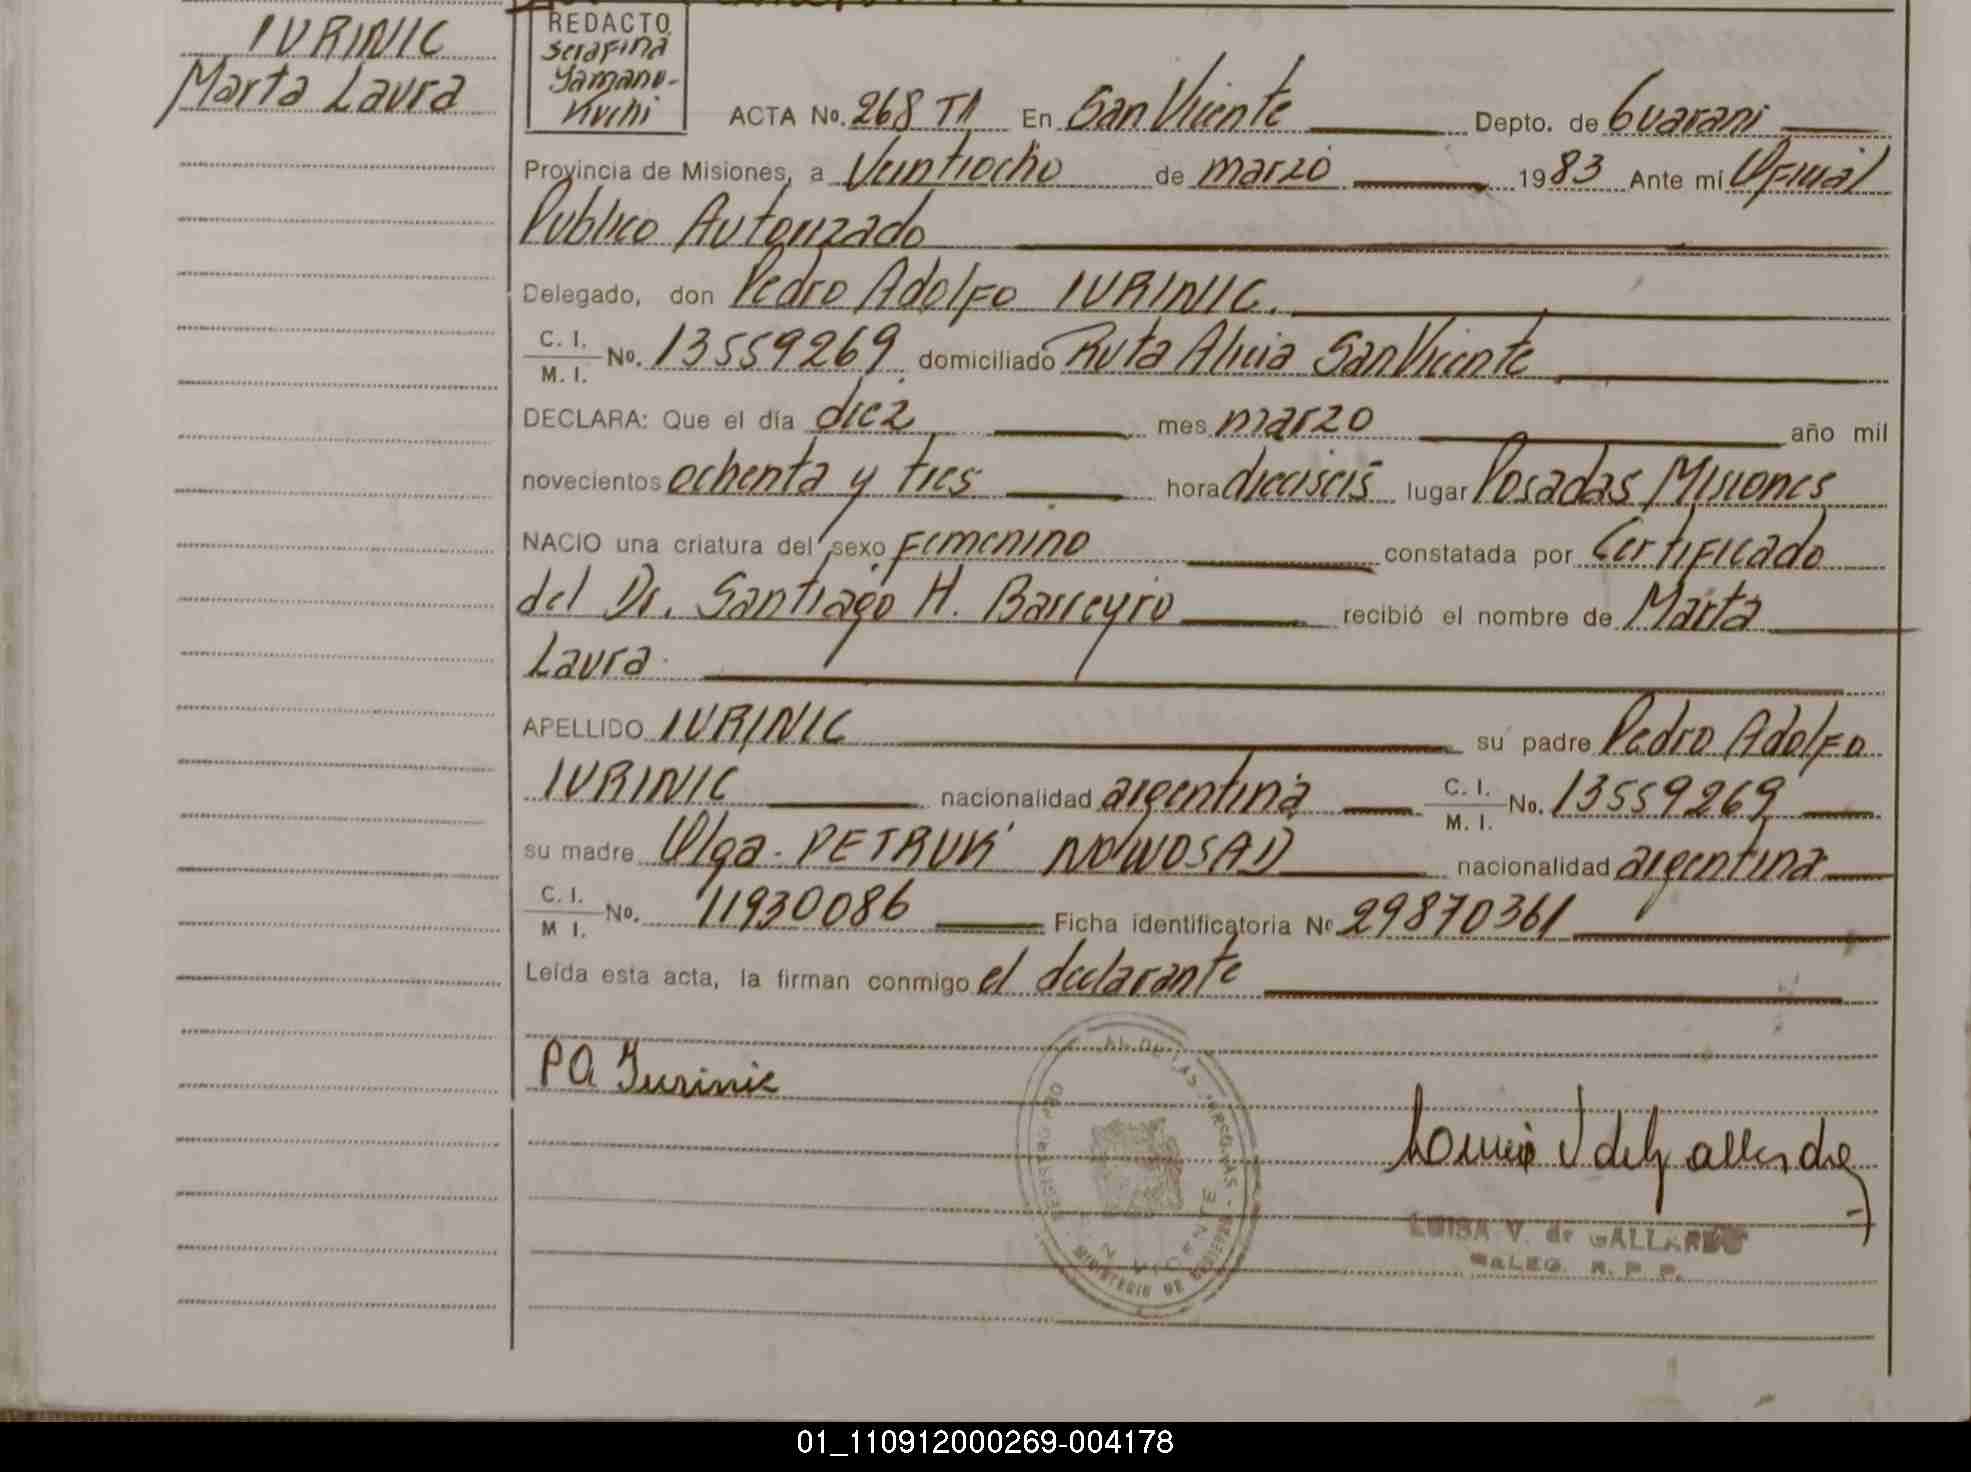 IURINIC
Marta Laura
REDACTO
Serafina
Yamano-
Kuchi
ACTA No. 268 TI En San Vicente Depto. de Guarani
Provincia de Misiones, a Veintiocho de marzo 1983 Ante mi Oficial
Publico Autorizado
Delegado, don Pedro Adolfo IURINIC.
C. I.
M. I. No. 13559269 domiciliado Ruta Alicia San Vicente
DECLARA: Que el día diez mes marzo año mil
novecientos ochenta y tres hora dieciseis lugar Posadas Misiones
NACIO una criatura del sexo Femenino constatada por Certificado
del Dr. Santiago H. Barreyro recibió el nombre de Marta
Laura
APELLIDO IURINIC su padre Pedro Adolfo
IURINIC nacionalidad argentina C. I.
M. I. No. 13559269
su madre Olga PETRUK NOWOSAD nacionalidad argentina
C. I.
M I. No. 11930086 Ficha identificatoria Nº 29870361
Leída esta acta, la firman conmigo el declarante
PA Iurinic
REGISTRO PRO AL DE LAS PERSONAS - MINISTERIO DE GOBIERNO
N VICENTE
LUISA V. de GALLARDO
DELEG. R. P. P.
01_110912000269-004178